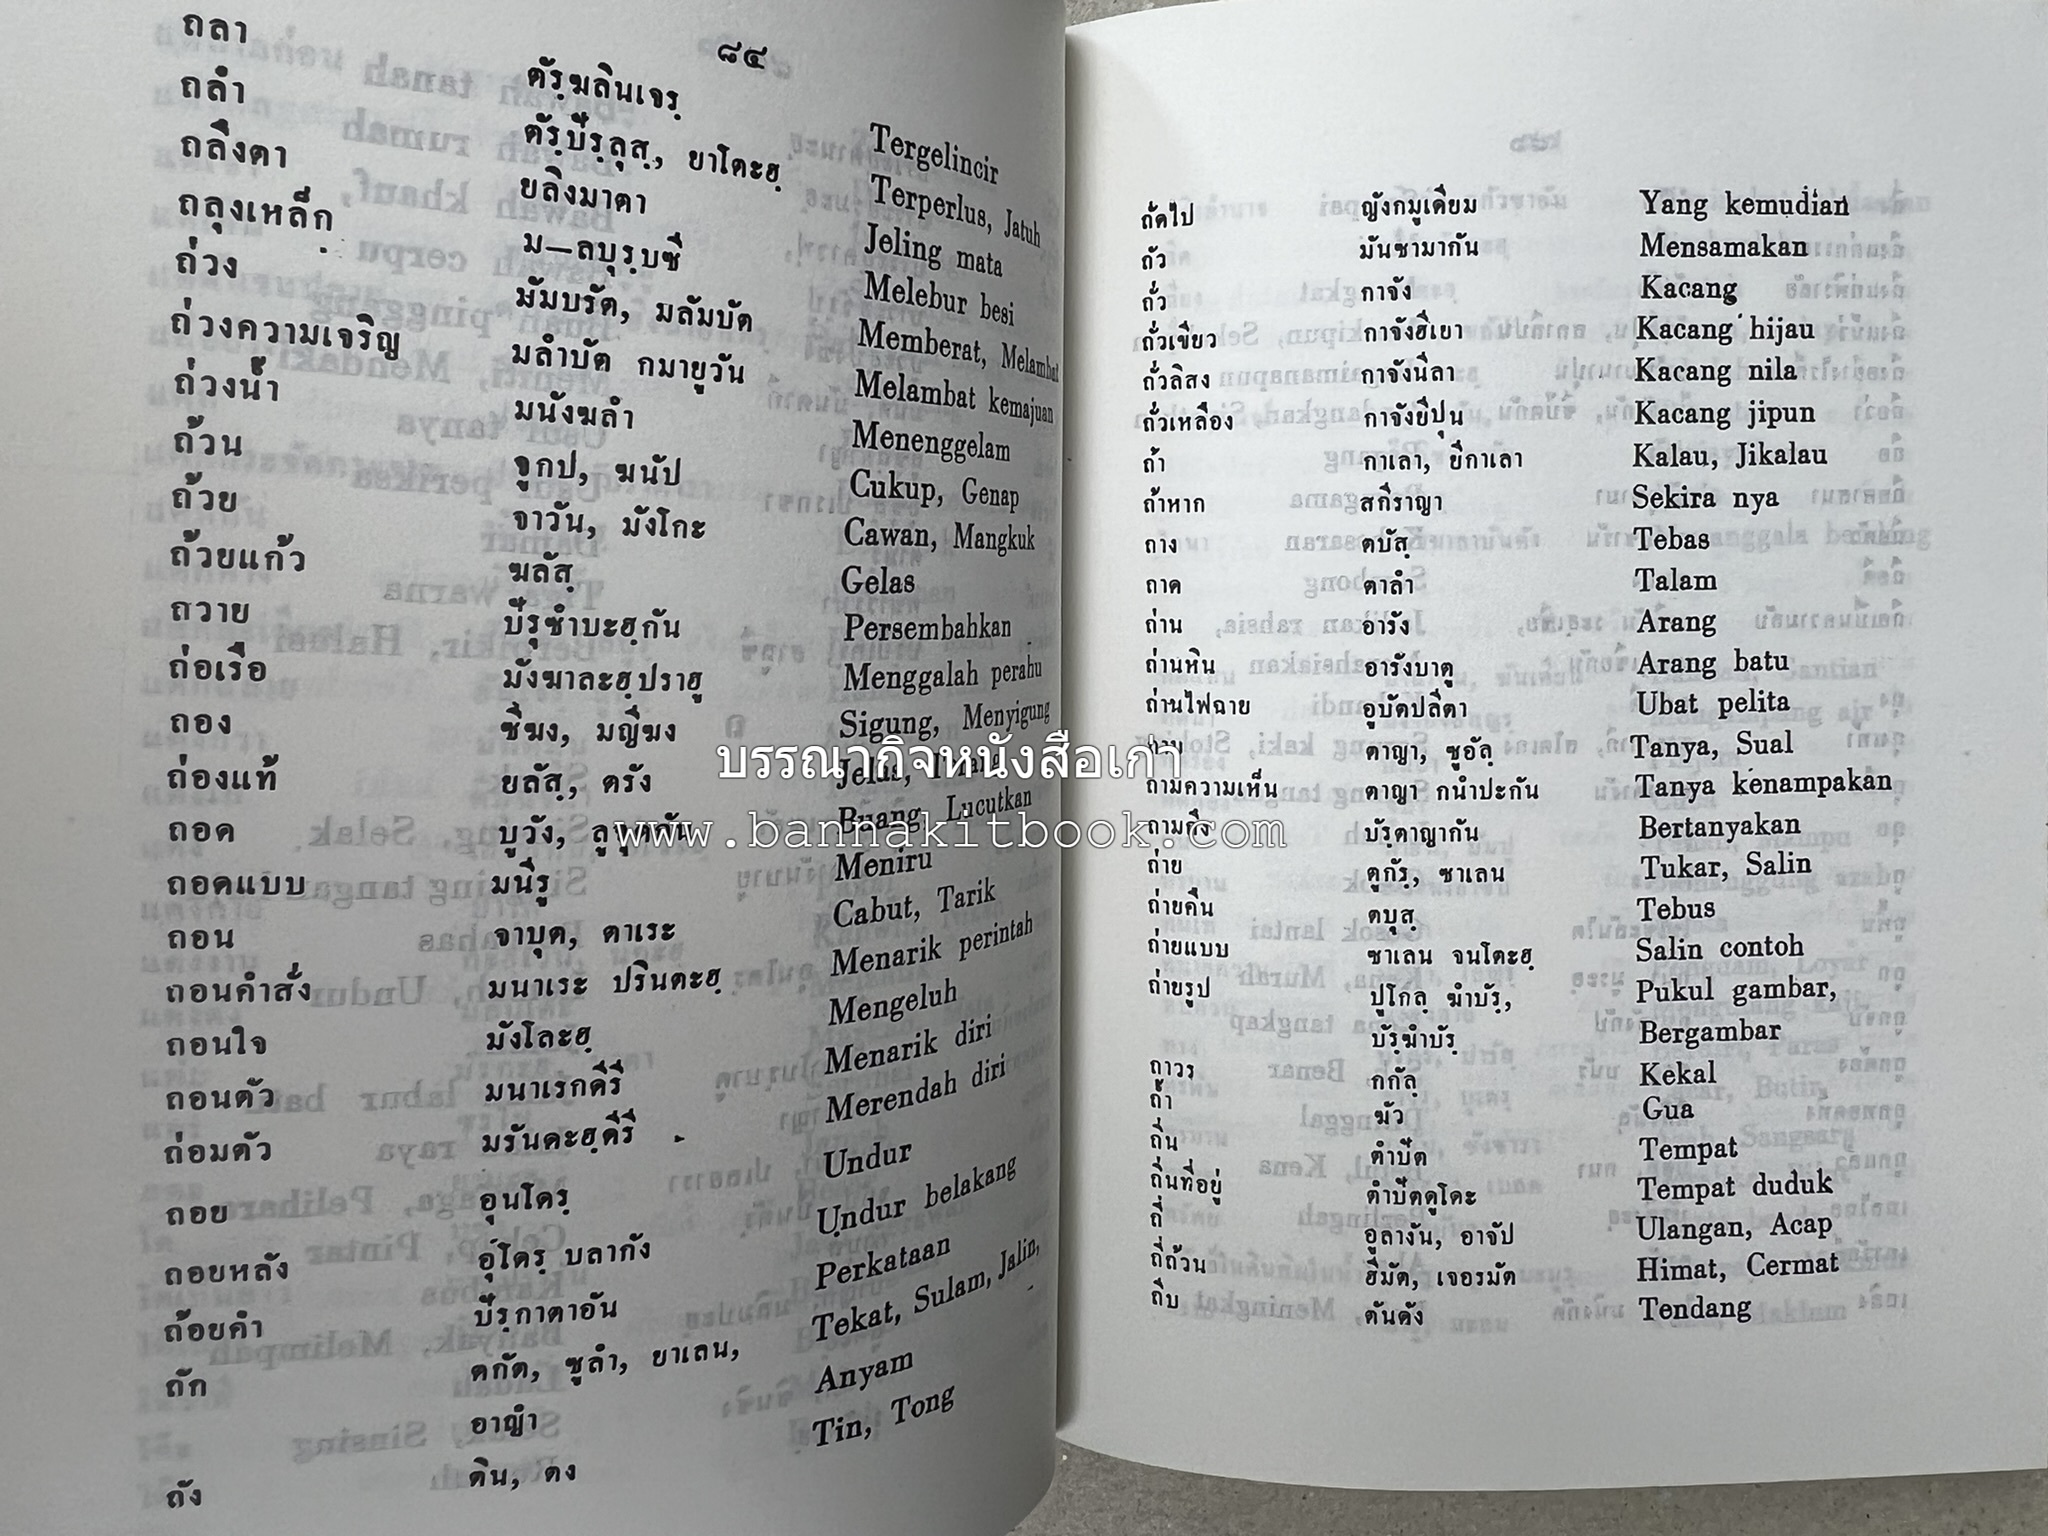 ๘๔
ถลา ตัรฺฆลินเจรฺ Tergelincir
ถลำ ตัรฺปัรฺลุสฺ, ยาโตะฮฺ Terperlus, Jatuh
ถลึงตา ยลิงมาตา Jeling mata
ถลุงเหล็กฺ ม—ลบุรฺบซี Melebur besi
ถ่วง มัมบรัต, มลัมบัต Memberat, Melambat
ถ่วงความเจริญ มลำบัต กมายูวัน Melambat kemajuan
ถ่วงน้ำ มนังฆลำ Menenggelam
ถ้วน จูกป, ฆนัป Cukup, Genap
ถ้วย จาวัน, มังโกะ Cawan, Mangkuk
ถ้วยแก้ว ฆลัสฺ Gelas
ถวาย ปัรฺซำบะฮฺกัน Persembahkan
ถ่อเรือ มังฆาละฮฺปราฮู Menggalah perahu
ถอง ซิฆง, มญีฆง Sigung, Menyigung
ถ่องแท้ ยลัสฺ, ตรัง
ถอด บูวัง, Buang, Lucutkan
ถอดแบบ มนีรู Meniru
ถอน จาบุต, ตาเระ Cabut, Tarik
ถอนคำสั่ง มนาเระ ปรินตะฮฺ Menarik perintah
ถอนใจ มังโละฮฺ Mengeluh
ถอนตัว มนาเรกดีรี Menarik diri
ถ่อมตัว มรันดะฮฺดีรี Merendah diri
ถอย อุนโดรฺ Undur
ถอยหลัง บลากัง Undur belakang
ถ้อยคำ ปัรฺกาตาอัน Perkataan
ถัก ตกัต, ซูลำ, ยาเลน, Tekat, Sulam, Jalin,
อาญำ Anyam
ถัง ติน, ตง Tin, Tong
ถัดไป ญังกมูเดียม Yang kemudian
ถัว มันซามากัน Mensamakan
ถั่ว กาจัง Kacang
ถั่วเขียว กาจังฮิเยา Kacang hijau
ถั่วลิสง กาจังนิลา Kacang nila
ถั่วเหลือง กาจังยีปุน Kacang jipun
ถ้า กาเลา, ยีกาเลา Kalau, Jikalau
ถ้าหาก สกีราญา Sekira nya
ถาง ตบัสฺ Tebas
ถาด ตาลำ Talam
ถ่าน อารัง Arang
ถ่านหิน อารังบาตู Arang batu
ถ่านไฟฉาย อูบัตปลีตา Ubat pelita
ตาญา, ซูอัลฺ Tanya, Sual
ถามความเห็น ตาญา กนำปะกัน Tanya kenampakan
ถามถึง บัรฺตาญากัน Bertanyakan
ถ่าย ตูกัรฺ, ซาเลน Tukar, Salin
ถ่ายคืน ตบุสฺ Tebus
ถ่ายแบบ ซาเลน จนโตะฮฺ Salin contoh
ถ่ายรูป ปูโกลฺ ฆำบัรฺ, Pukul gambar,
บัรฺฆำบัรฺ Bergambar
ถาวร กกัลฺ Kekal
ถ้ำ ฆัว Gua
ถิ่น ตำปัต Tempat
ถิ่นที่อยู่ ตำปัตดูโดะ Tempat duduk
ถี่ อูลางัน, อาจัป Ulangan, Acap
ถี่ถ้วน ฮีมัต, เจอรมัต Himat, Cermat
ถีบ ตันดัง Tendang
บรรณากิจหนังสือเก่า
www.bannakitbook.com